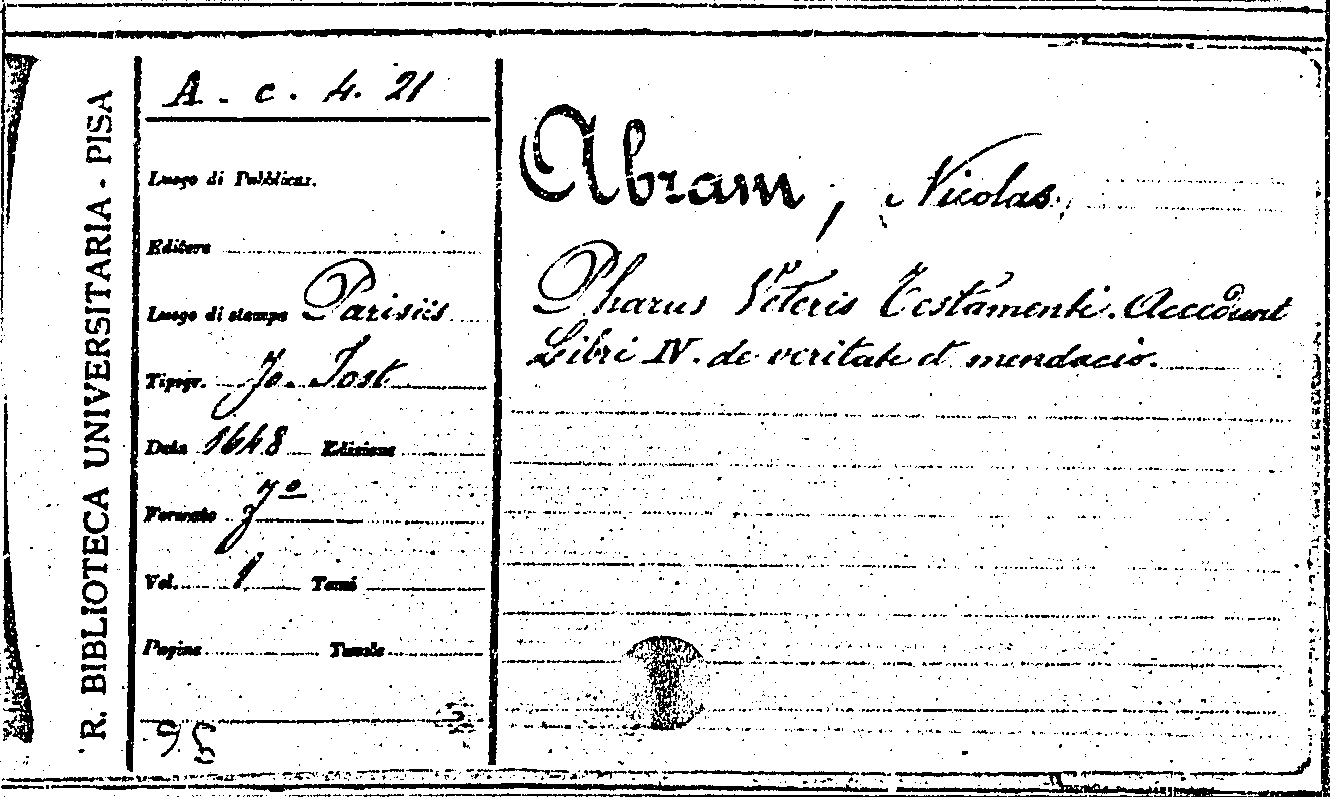 R. BIBLIOTECA UNIVERSITARIA - PISA
A. c. 4. 21
Luogo di Pubblicaz.
Editore
Luogo di stampa Parisiis
Tipogr. Jo. Jost
Data 1648 Edizione
Formato
Vol. 1 Tomi
Pagine Tavole
Abram, Nicolas
Pharus Veteris Testamenti. Accedunt
Libri IV. de veritate et mendacio.